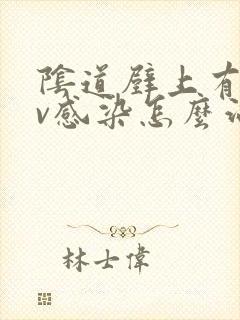 陰道壁上有
v感染怎麼
林士偉